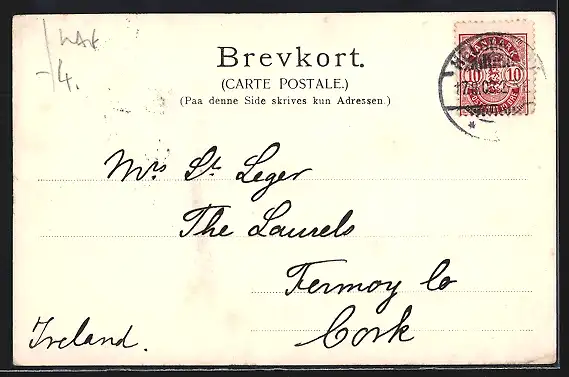 Brevkort.
(CARTE POSTALE.)
(Paa denne Side skrives kun Adressen.)
DANMARK
10 10
Mrs St. Leger
The Laurels
Fermoy Co
Cork
Ireland.